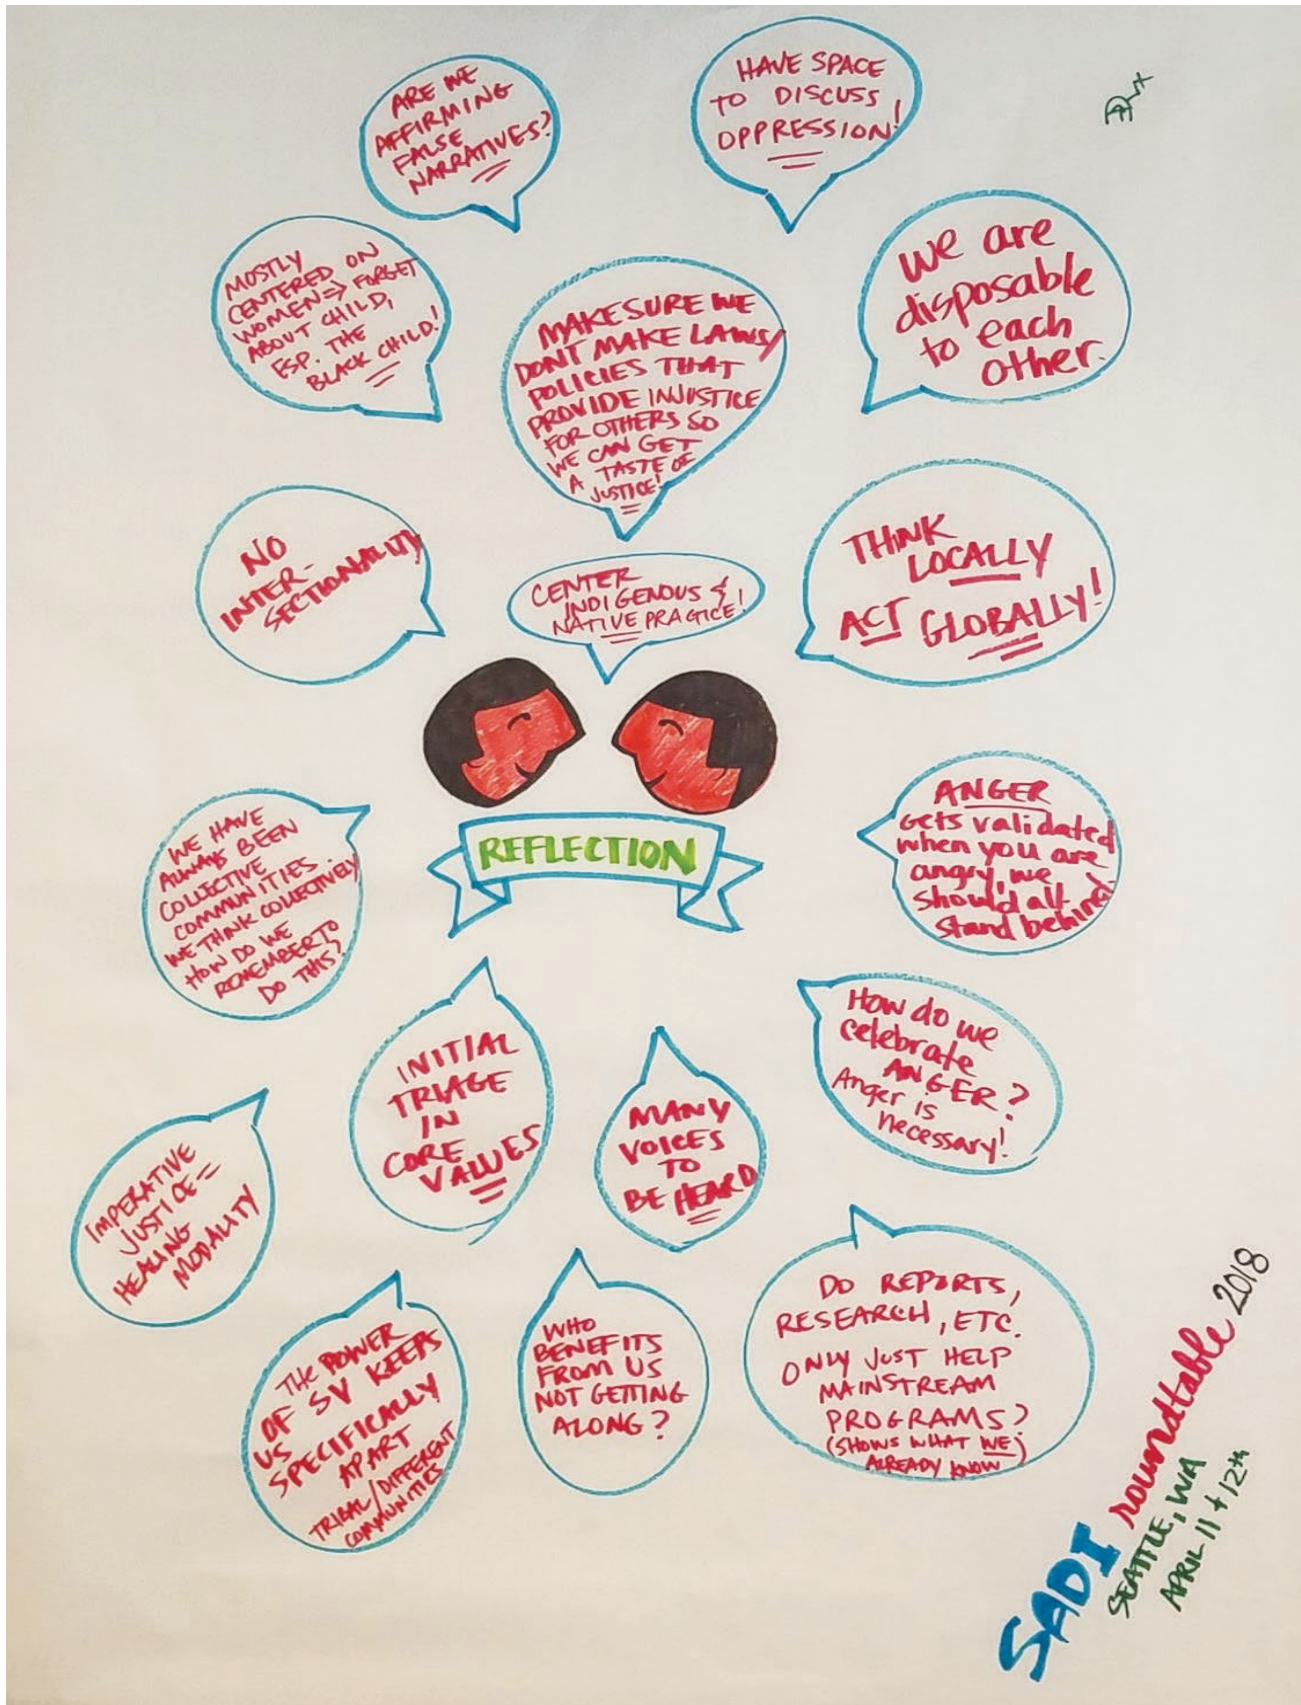 ARE WE
AFFIRMING
FALSE
NARRATIVES?
HAVE SPACE
TO DISCUSS
OPPRESSION!
MOSTLY
CENTERED ON
WOMEN => FORGET
ABOUT CHILD,
ESP. THE
BLACK CHILD!
MAKE SURE WE
DONT MAKE LAWS/
POLICIES THAT
PROVIDE INJUSTICE
FOR OTHERS SO
WE CAN GET
A TASTE OF
JUSTICE!
We are
disposable
to each
other.
NO
INTER-
SECTIONALITY
CENTER
INDIGENOUS &
NATIVE PRACTICE!
THINK
LOCALLY
ACT GLOBALLY!
REFLECTION
WE HAVE
ALWAYS BEEN
COLLECTIVE
COMMUNITIES
WE THINK COLLECTIVELY
HOW DO WE
REMEMBER TO
DO THIS?
ANGER
gets validated
when you are
angry, we
should all
stand behind!
INITIAL
TRIAGE
IN
CORE
VALUES
MANY
VOICES
TO
BE HEARD
How do we
celebrate
ANGER?
Anger is
necessary!
IMPERATIVE
JUSTICE =
HEALING
MODALITY
THE POWER
OF SV KEEPS
US
SPECIFICALLY
APART
TRIBAL/DIFFERENT
COMMUNITIES
WHO
BENEFITS
FROM US
NOT GETTING
ALONG?
DO REPORTS,
RESEARCH, ETC.
ONLY JUST HELP
MAINSTREAM
PROGRAMS?
(SHOWS WHAT WE
ALREADY KNOW)
SADI roundtable 2018
SEATTLE, WA
APRIL 11 + 12th